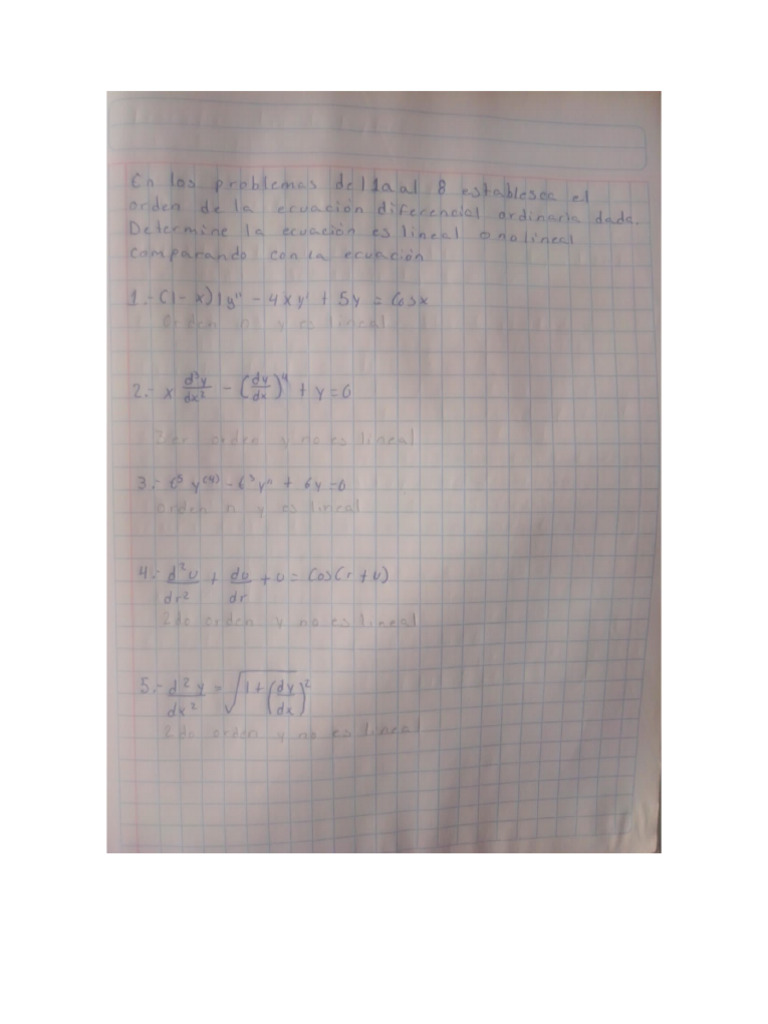 En los problemas del 1a al 8 establesca el
orden de la ecuación diferencial ordinaria dada.
Determine la ecuación es lineal o no lineal
comparando con la ecuación
1.- (1-x)y" - 4xy' + 5y = Cosx
Orden n y es lineal
2.- x d³y/dx² - (dy/dx)⁴ + y = 0
orden y no es lineal
3.- t⁵y⁽⁴⁾ - t³y" + 6y = 0
orden n y es lineal
4.- d²u/dr² + du/dr + u = Cos(r + u)
2do orden y no es lineal
5.- d²y/dx² = √1+(dy/dx)²
2do orden y no es lineal